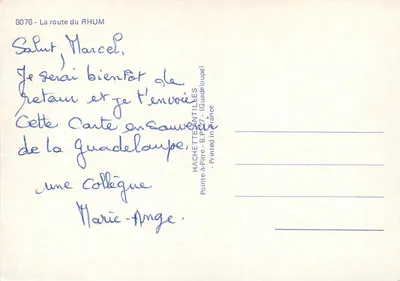 8076 - La route du RHUM
Salut, Marcel.
Je serai bientôt de
retour et je t'envoie
Cette Carte en Souvenir
de la Guadeloupe.
une Collègue
Marie-Ange.
HACHETTE ANTILLES
- (Guadeloupe)
Pointe-à-Pitre - B.P.
- Printed in France